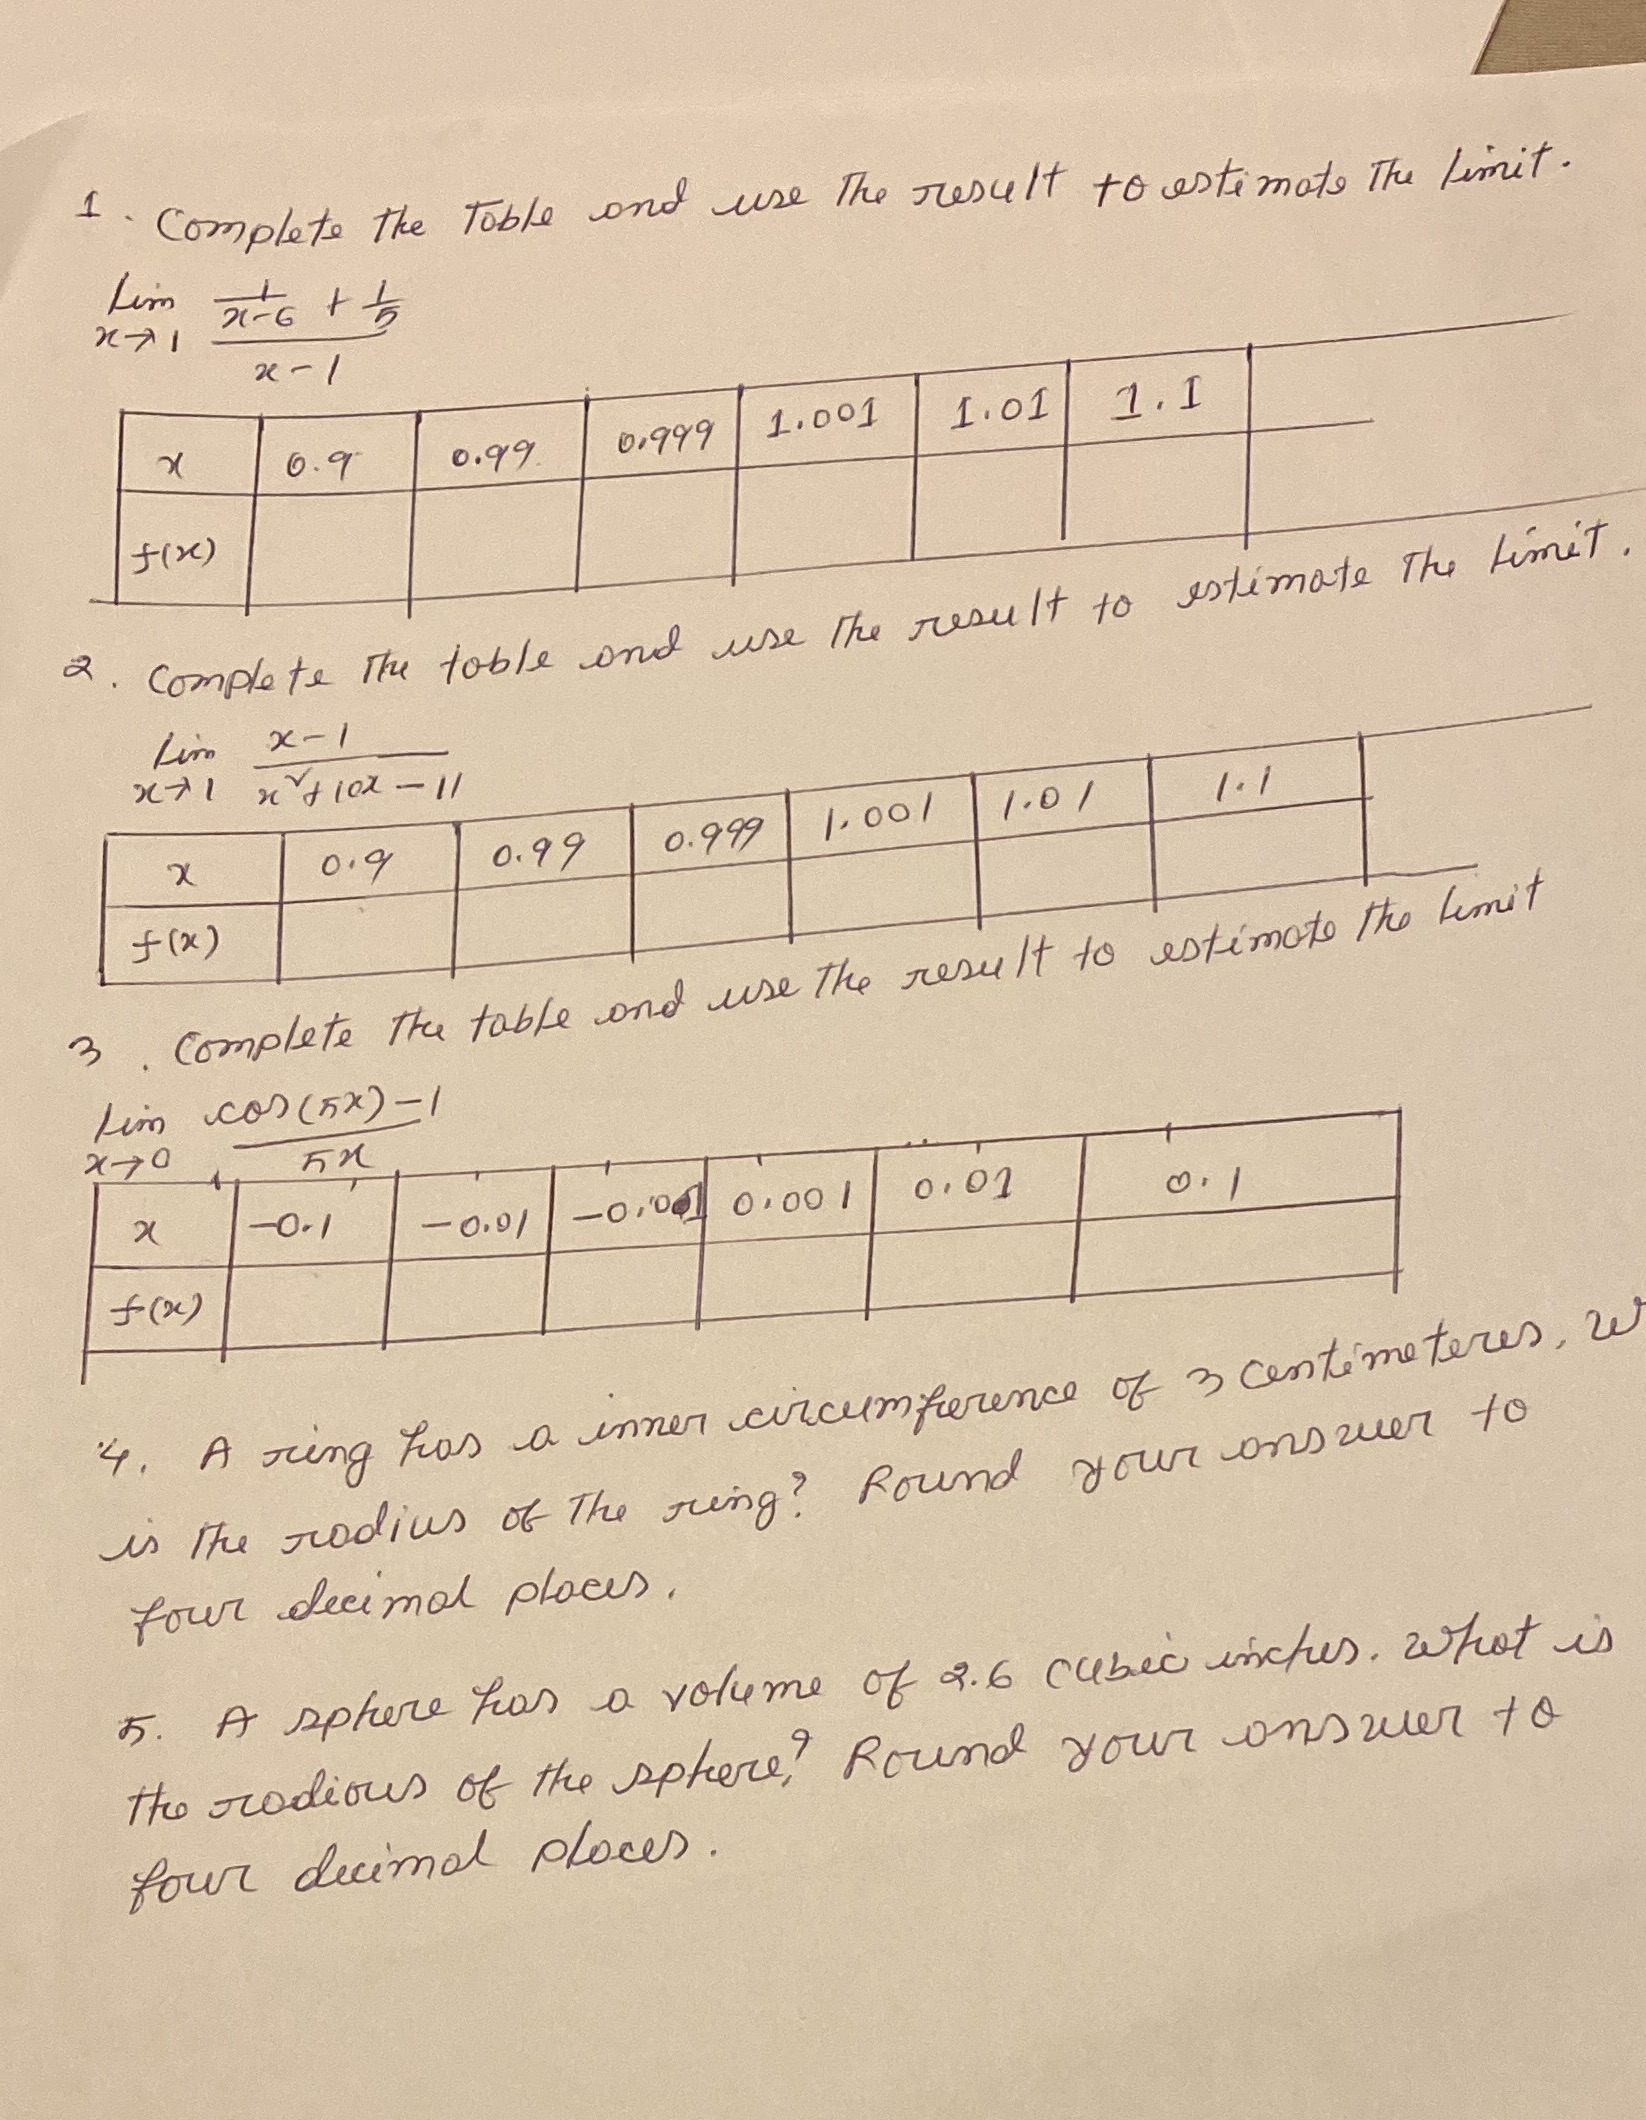 1. Complete the Table and use the result to estimate the limit.
lim x→1 (1/(x-6) + 1/5)/(x-1)
x 0.9 0.99 0.999 1.001 1.01 1.1
f(x)
2. Complete the table and use the result to estimate the limit.
lim x→1 (x-1)/(x²+10x-11)
x 0.9 0.99 0.999 1.001 1.01 1.1
f(x)
3. Complete the table and use the result to estimate the limit
lim x→0 (cos(5x)-1)/5x
x -0.1 -0.01 -0.001 0.001 0.01 0.1
f(x)
4. A ring has a inner circumference of 3 centimeteres,
is the radius of the ring? Round your answer to
four decimal places.
5. A sphere has a volume of 2.6 cubic inches. What is
the radious of the sphere? Round your answer to
four decimal places.